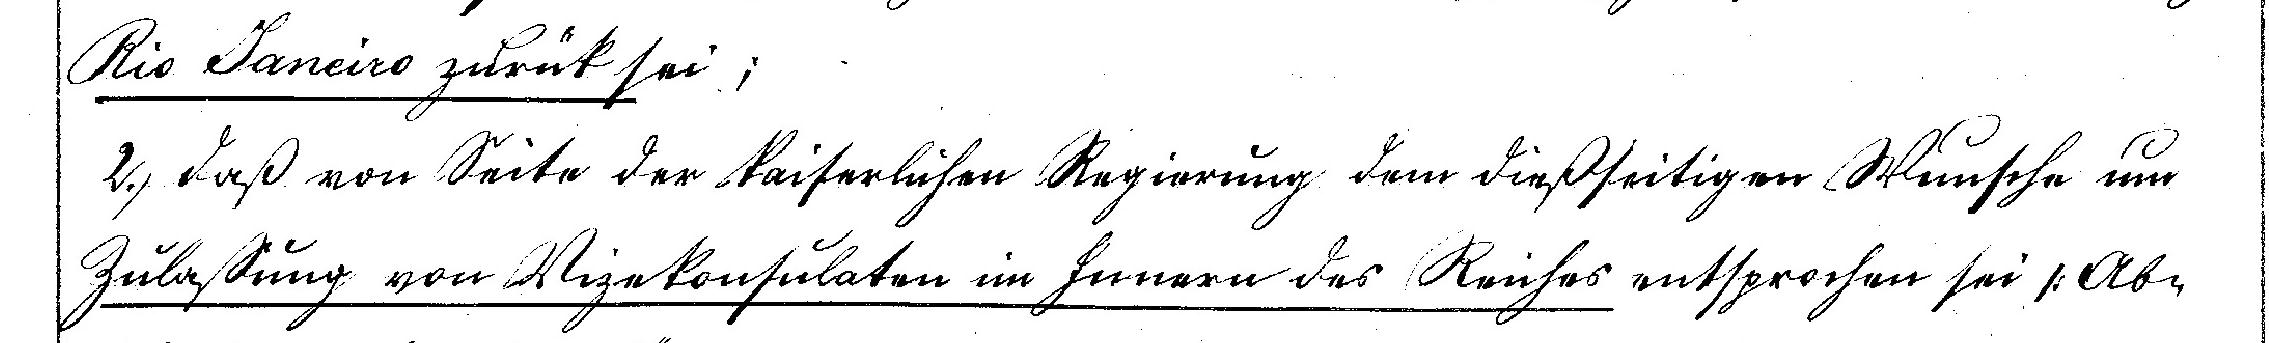 Rio Janeiro zurük sei;
2.) daß von Seite der kaiserlichen Regierung dem dießseitigen Wunsche um
Zulassung von Vizekonsulaten im Innern des Reiches entsprochen sei /: Ab-